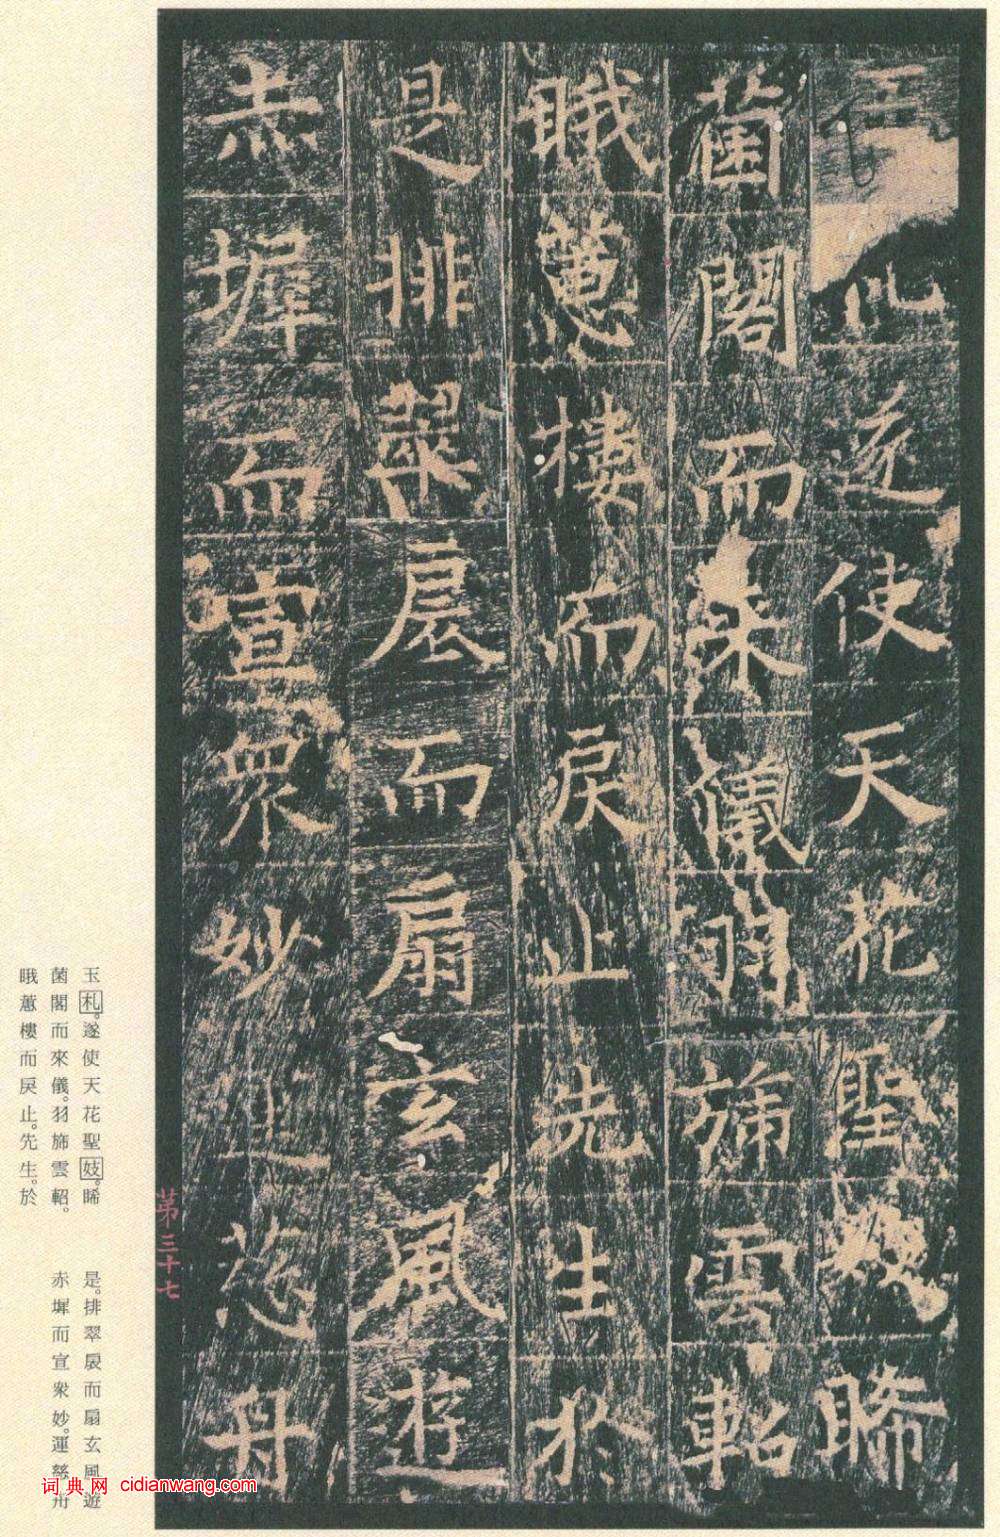 玉 遂使天花聖 睎
菌閣而來儀羽旆雲軺
睋蕙樓而戾止先生於
是排翠扆而扇玄風遊
赤墀而宣衆妙運慈舟
第三十七
玉札。遂使天花聖妓。睎
菌閣而來儀。羽旆雲軺。
睋蕙樓而戾止。先生。於
是。排翠扆而扇玄風遊
赤墀而宣衆妙。運慈舟
词典网 cidianwang.com